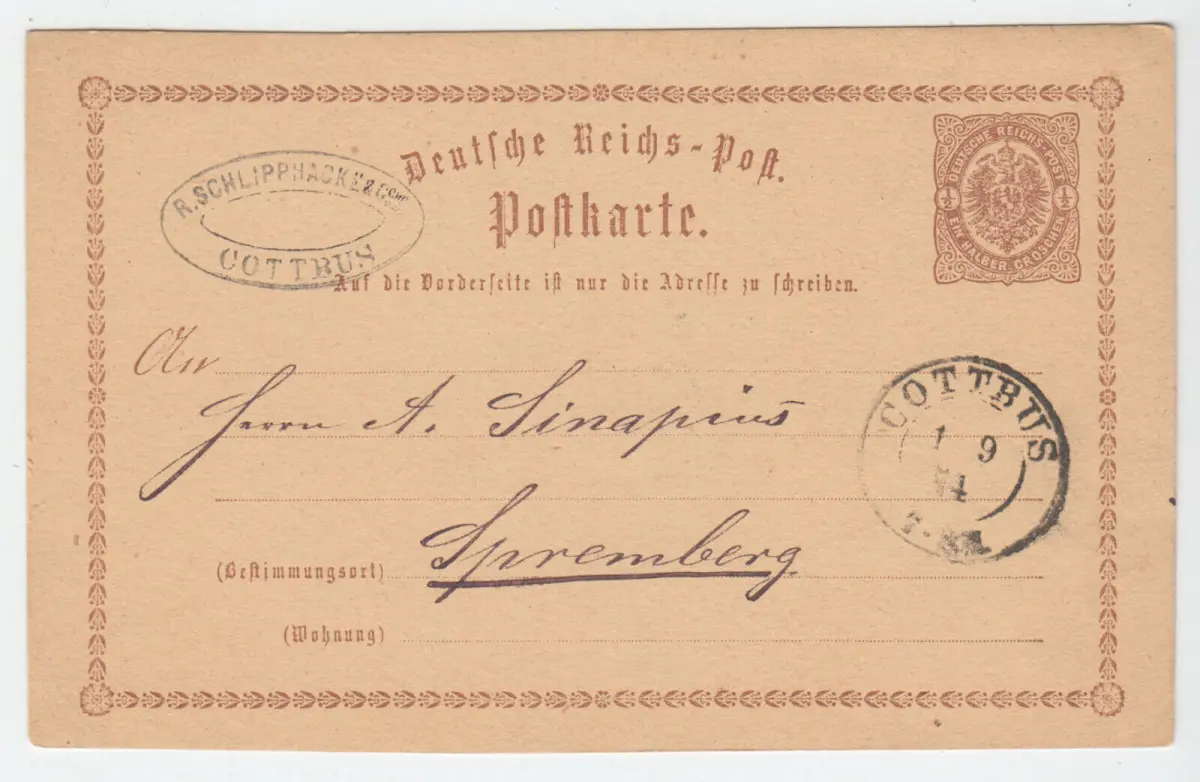 Deutsche Reichs-Post.
Postkarte.
Auf die Vorderseite ist nur die Adresse zu schreiben.
R. SCHLIPPHACKE & Co
COTTBUS
DEUTSCHE REICHS-POST
½ ½
EIN HALBER GROSCHEN
An
Herrn A. Sinapius
COTTBUS
1 9
74
Spremberg
(Bestimmungsort)
(Wohnung)